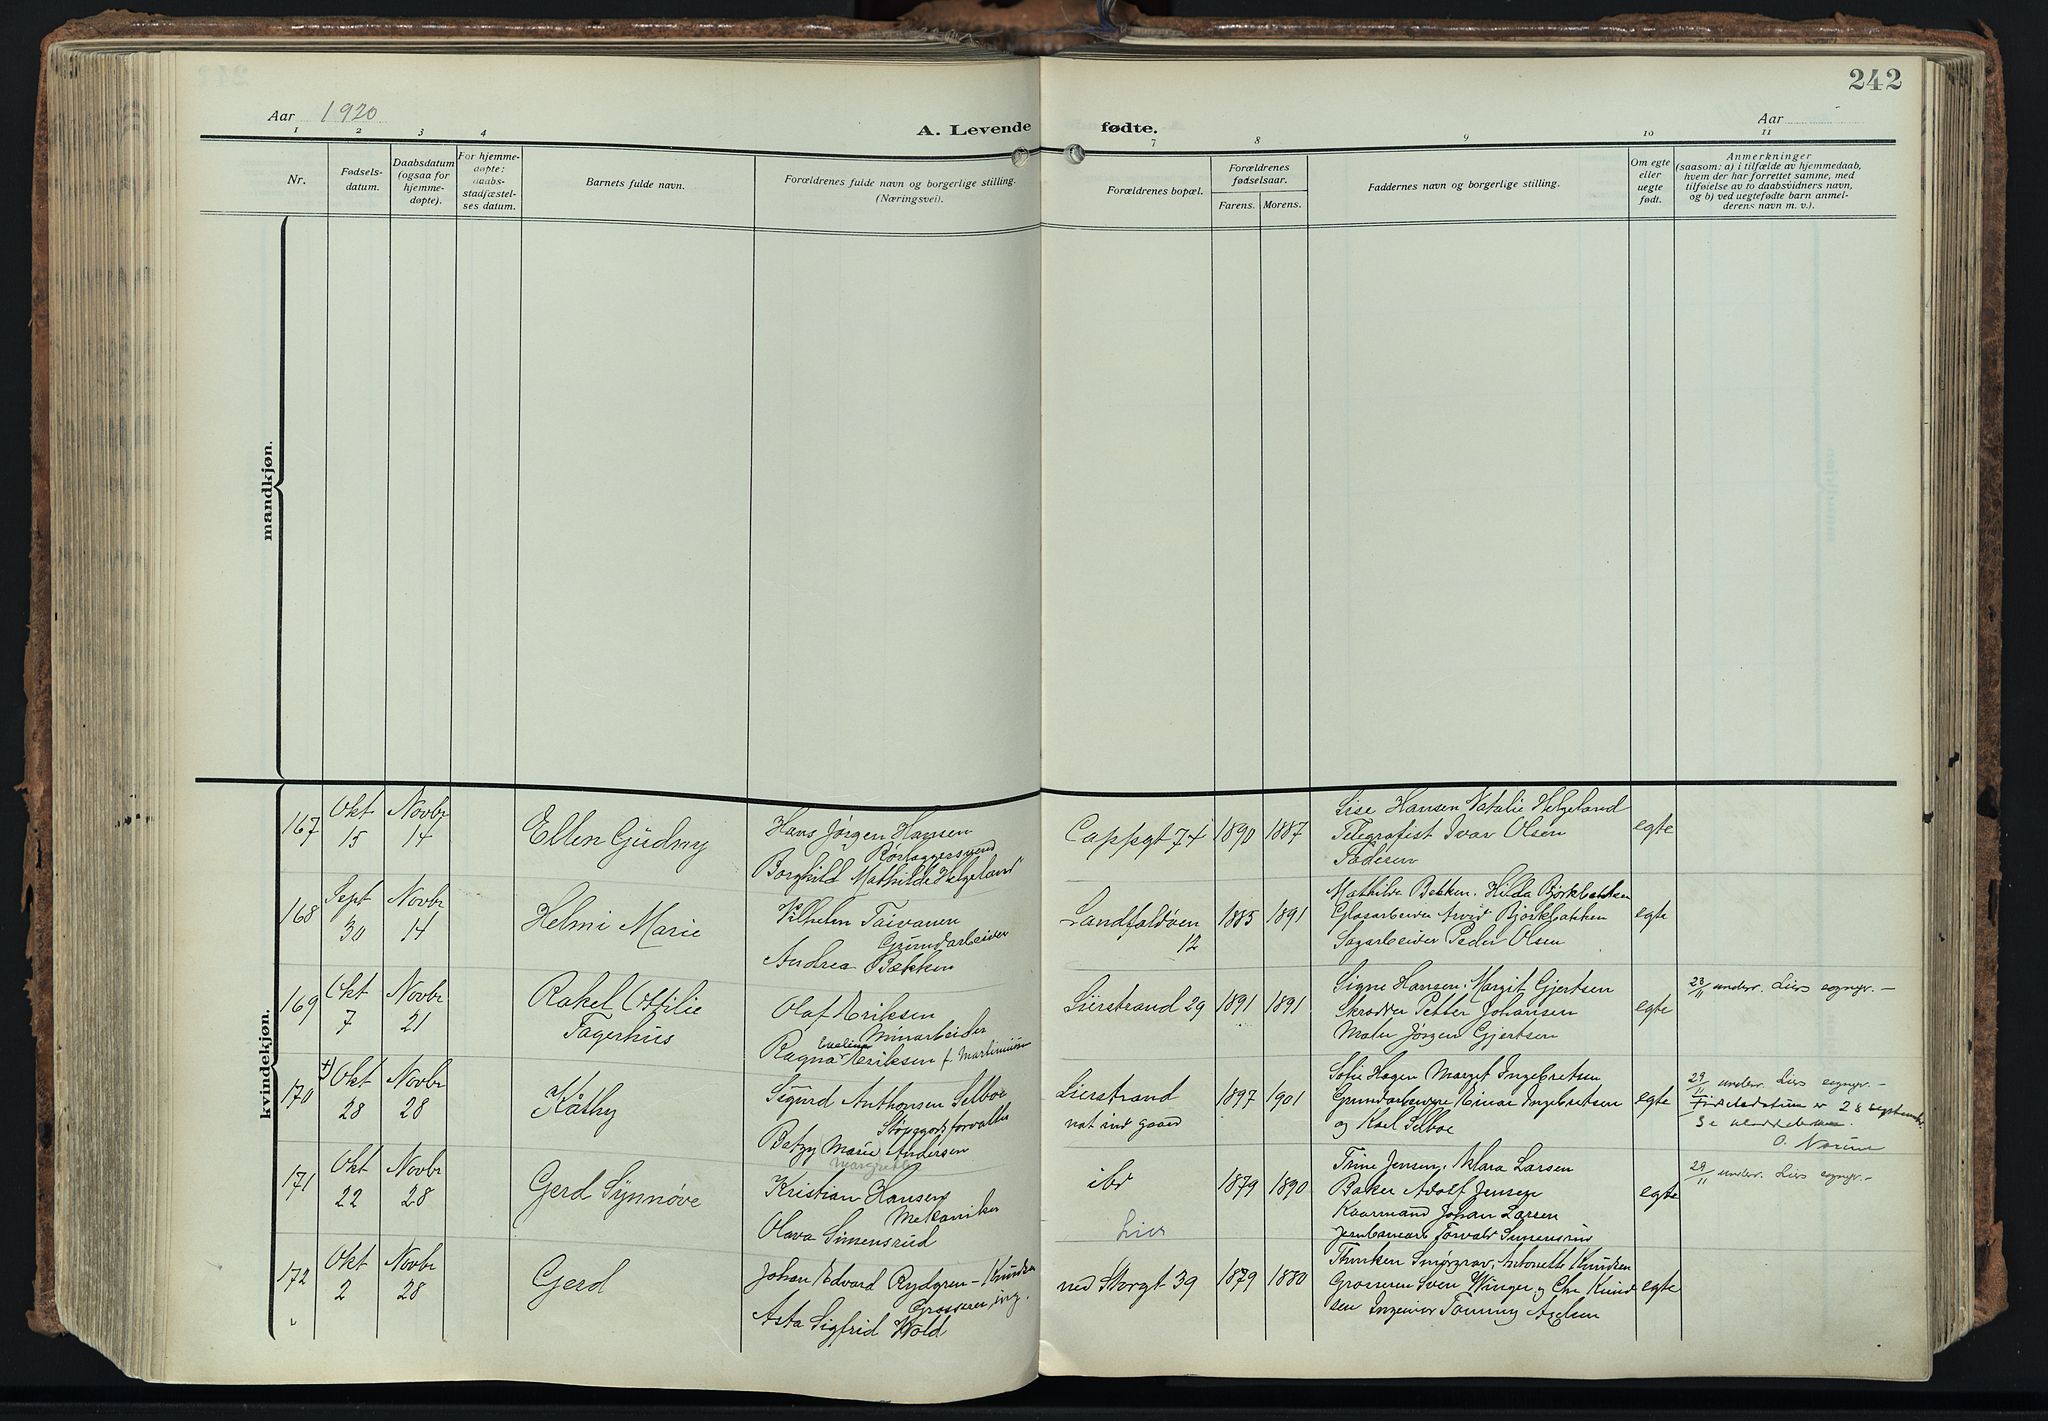 242
Aar 1920
A. Levende fødte.
Aar
1 2 3 4 7 8 9 10 11
Nr.
Fødsels-
datum.
Daabsdatum
(ogsaa for
hjemme-
døpte).
For hjemme-
døpte:
daabs-
stadfæstel-
ses datum.
Barnets fulde navn.
Forældrenes fulde navn og borgerlige stilling.
(Næringsvei).
Forældrenes bopæl.
Forældrenes
fødselsaar.
Farens. Morens.
Faddernes navn og borgerlige stilling.
Om egte
eller
uegte
født.
Anmerkninger
(saasom: a) i tilfælde av hjemmedaab,
hvem der har forrettet samme, med
tilføielse av to daabsvidners navn,
og b) ved uegtefødte barn anmel-
derens navn m. v.).
mandkjøn.
kvindekjøn.
167
Okt
15
Novbr
14
Ellen Gudny
Hans Jørgen Hansen
Rørlæggersvend
Borghild Mathilde Helgeland
Cappgt 74
1890
1887
Lise Hansen Natalie Helgeland
Telegrafist Ivar Olsen
Faderen
egte
168
Sept
30
Novbr
14
Helmi Marie
Vilhelm Taivanen
Grundarbeider
Andrea Bækken
Landfaldøen
12
1885
1891
Mathilde Bekken. Hilda Bjørkbækken
Glasarbeider Arvid Bjørkbakken
Sagarbeider Peder Olsen
egte
169
Okt
7
Novbr
21
Rakel Ottilie
Fagerhus
Olaf Eriksen
Minarbeider
Eveline
Ragna Eriksen f. Martiniusen
Lierstrand 29
1891
1891
Signe Hansen. Margit Gjertsen
Skrædder Petter Johansen
Maler Jørgen Gjertsen
egte
23/11 underr. Liers sognepr. –
170
+)
Okt
28
Novbr
28
Käthy
Sigurd Anthonsen Selboe
Støpegodsforvalter
Betzy Marie Andersen
Margrethe
Lierstrand
1897
1901
Sofie Hagen Margit Ingebretsen
Grundarbeidere Einar Ingebretsen
og Karl Selboe
egte
29/11 underr. Liers sognepr. –
Fødselsdatum er 28 september.
Se kladdeboken.
O. Norum
171
Okt
22
Novbr
28
Gerd Synnøve
Kristian Hansen
Mekaniker
Olava Simensrud
ibr
Lier
1879
1890
Trine Jensen. Klara Larsen
Baker Adolf Jensen
Kaarmand Johan Larsen
Jernbanearb Torvald Simensrud
egte
29/11 underr. Liers sognepr. –
172
Okt
2
Novbr
28
Gerd
Johan Edvard Rydgren – Knudsen
Grosserer, ing.
Asta Sigfrid Wold
ned Storgt 39
1879
1880
Thinken Smørgrav, Antonette Knudsen
Grosserer Sven Winger og Chr Knud
sen Ingeniør Tommy Axelsen
egte